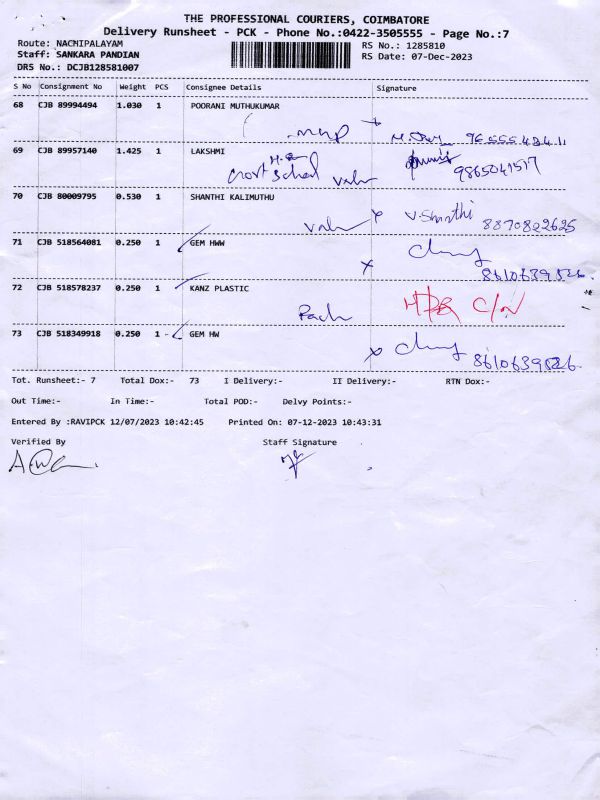 THE PROFESSIONAL COURIERS, COIMBATORE
Delivery Runsheet - PCK - Phone No.:0422-3505555 - Page No.:7
Route: NACHIPALAYAM
RS No.: 1285810
Staff: SANKARA PANDIAN
RS Date: 07-Dec-2023
DRS No.: DCJB128581007
S No Consignment No Weight PCS Consignee Details Signature
68 CJB 89994494 1.030 1 POORANI MUTHUKUMAR
69 CJB 89957140 1.425 1 LAKSHMI
Govt School
9865041517
70 CJB 80009795 0.530 1 SHANTHI KALIMUTHU
V. Shanthi
8870822625
71 CJB 518564081 0.250 1 GEM HWW
72 CJB 518578237 0.250 1 KANZ PLASTIC
C/N
73 CJB 518349918 0.250 1 - GEM HW
Tot. Runsheet:- 7 Total Dox:- 73 I Delivery:- II Delivery:- RTN Dox:-
Out Time:- In Time:- Total POD:- Delvy Points:-
Entered By :RAVIPCK 12/07/2023 10:42:45 Printed On: 07-12-2023 10:43:31
Verified By Staff Signature